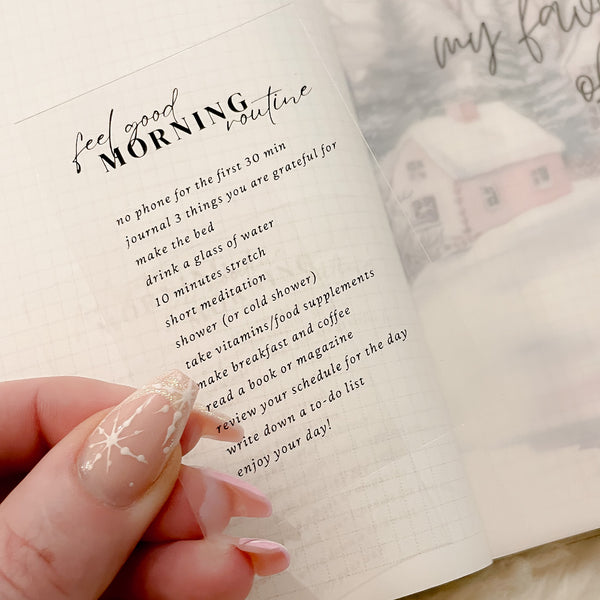 feel good
MORNING
routine
no phone for the first 30 min
journal 3 things you are grateful for
make the bed
drink a glass of water
10 minutes stretch
short meditation
shower (or cold shower)
take vitamins/food supplements
make breakfast and coffee
read a book or magazine
review your schedule for the day
write down a to-do list
enjoy your day!
my